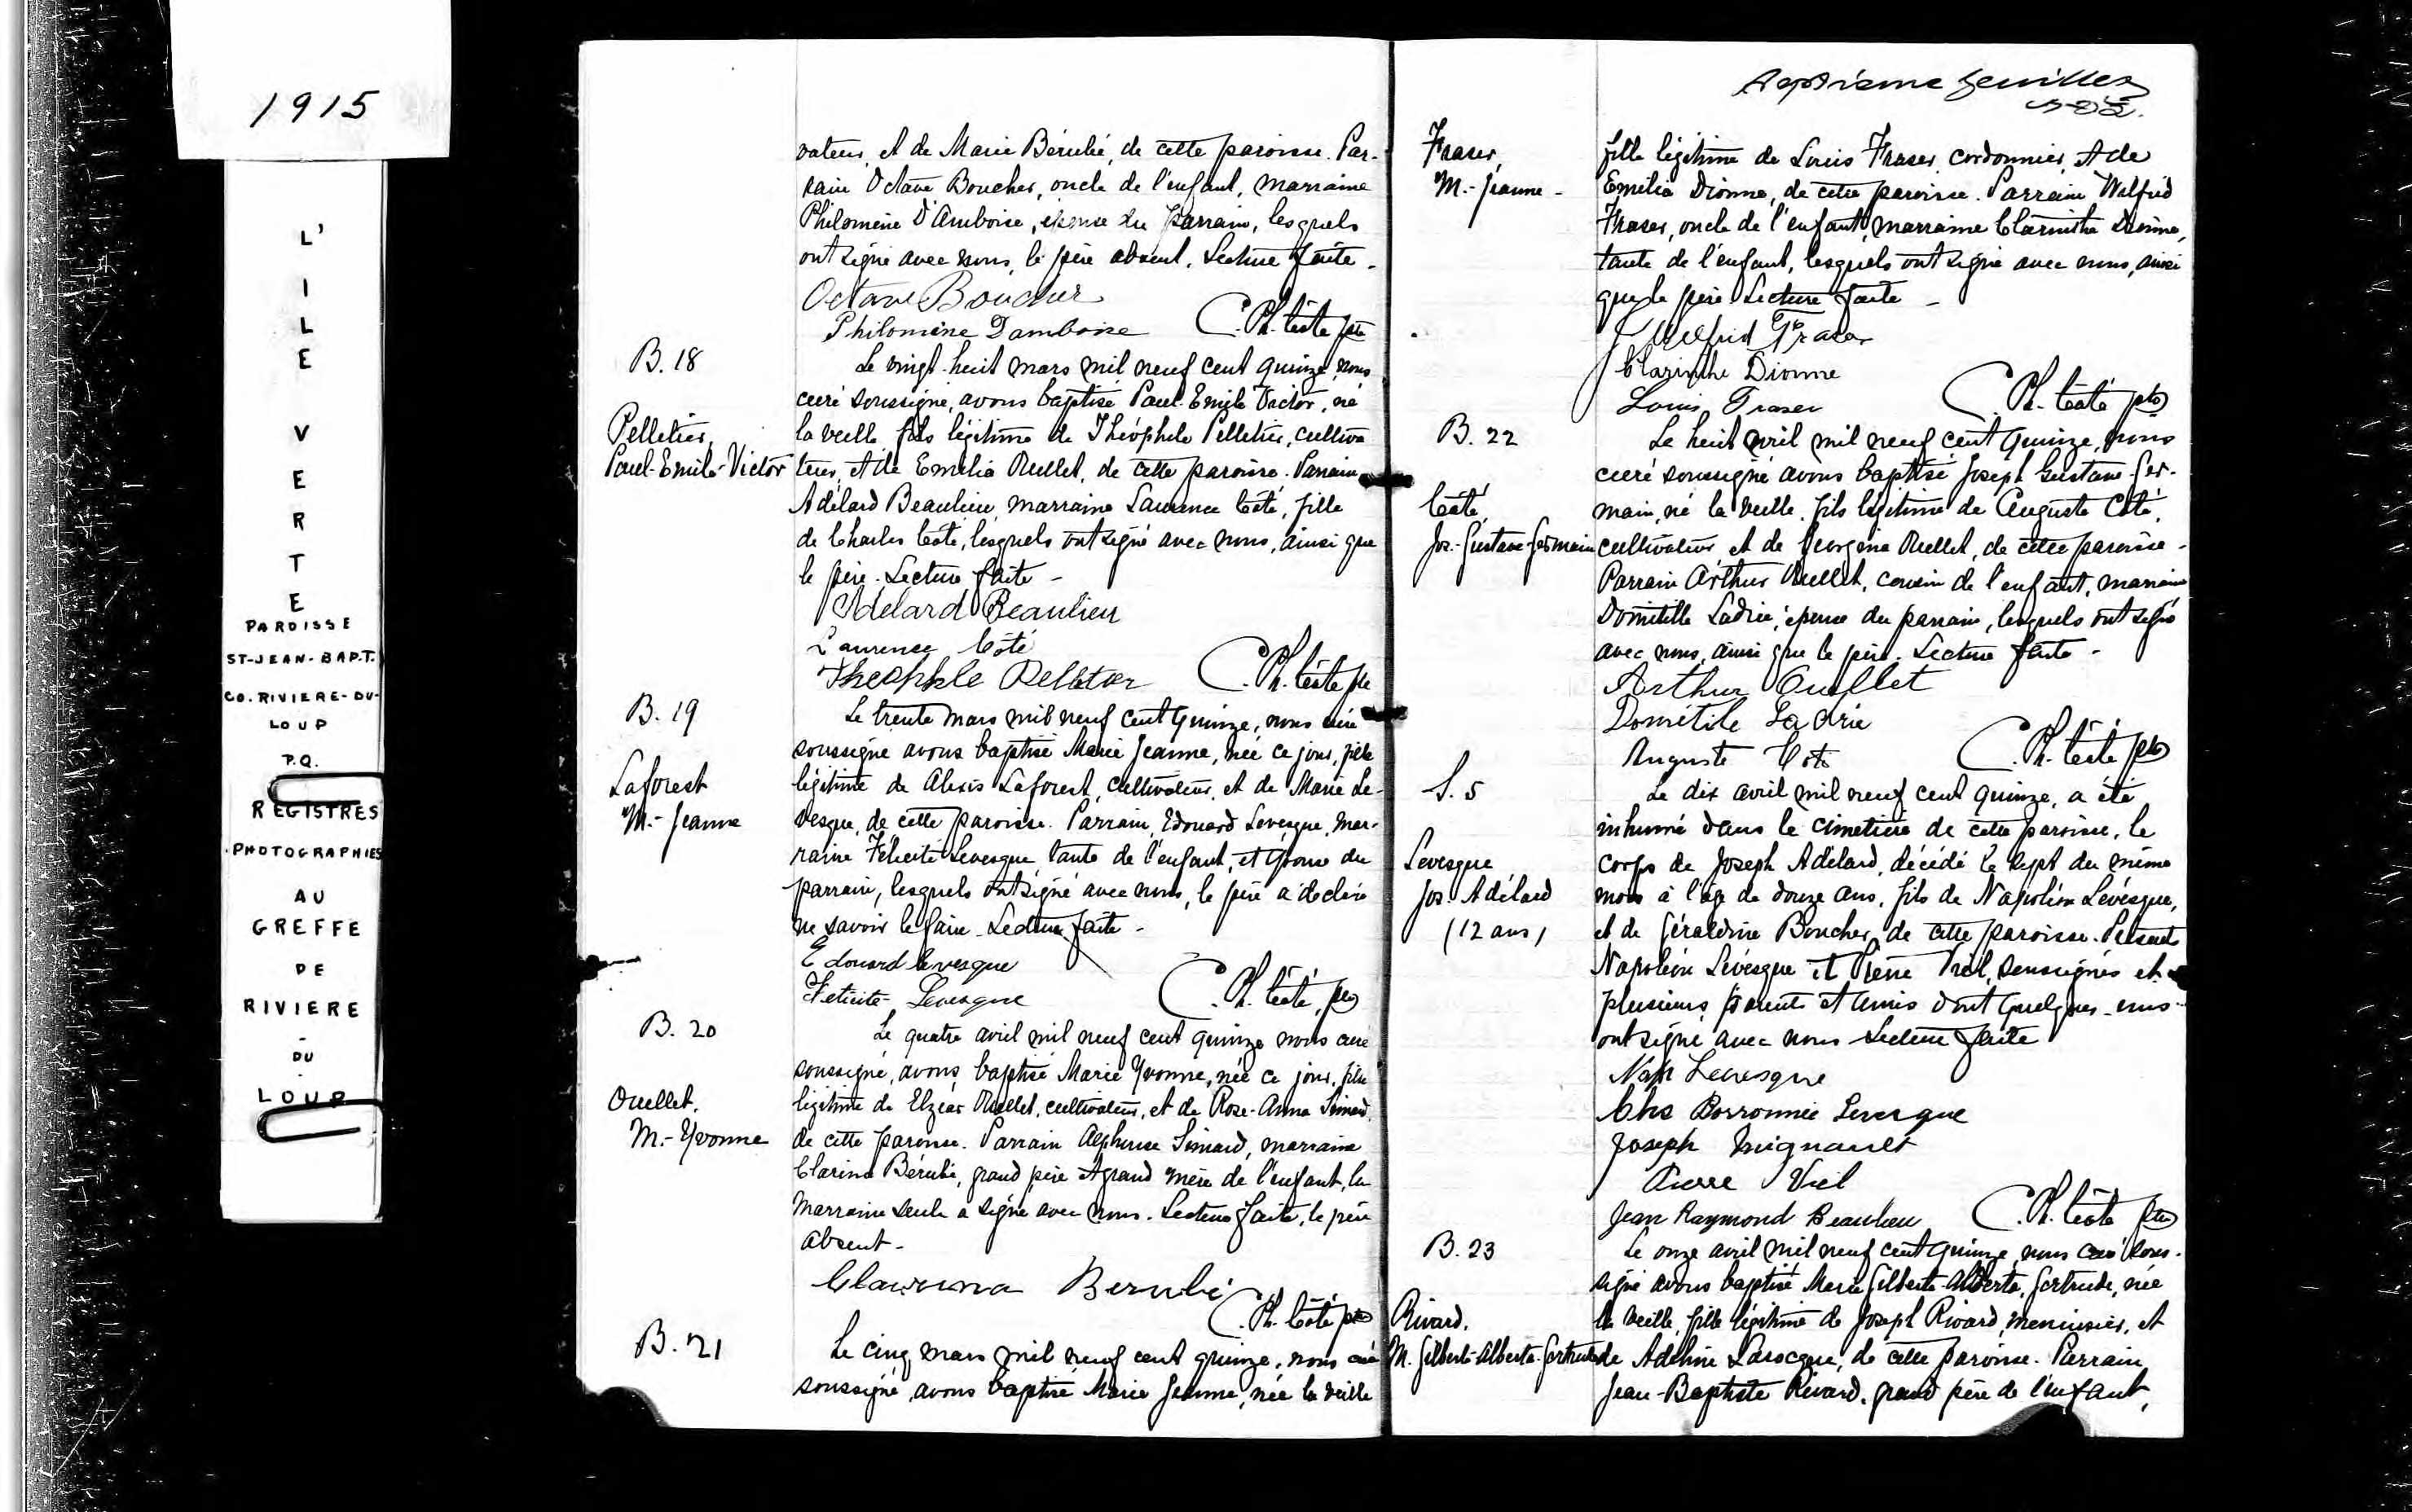 1915
L'
I
L
E
V
E
R
T
E
PAROISSE
ST-JEAN-BAPT.
CO. RIVIERE-DU-
LOUP
P.Q.
REGISTRES
PHOTOGRAPHIES
AU
GREFFE
DE
RIVIERE
-
DU
-
LOUP
vateur, et de Marie Bérubé, de cette paroisse. Par-
rain Octave Boucher, oncle de l'enfant, marraine
Philomène D'Amboise, épouse du parrain, lesquels
ont signé avec nous, le père absent. Lecture faite -
Octave Boucher
Philomène Damboise C. Ph. Côté ptre
B. 18
Le vingt-huit mars mil neuf cent quinze, nous
curé soussigné, avons baptisé Paul-Emile Victor, né
Pelletier,
Paul-Emile-Victor
la veille fils légitime de Théophile Pelletier, cultiva
teur, et de Emélia Ouellet, de cette paroisse. Parrain
Adélard Beaulieu, marraine Laurence Côté, fille
de Charles Côté, lesquels ont signé avec nous, ainsi que
le père. Lecture faite -
Adélard Beaulieu
Laurence Côté
Theophile Pelletier C. Ph. Côté ptre
B. 19
Le trente mars mil neuf cent quinze, nous curé
soussigné avons baptisé Marie Jeanne, née ce jour, fille
Laforest
M.- Jeanne
légitime de Alexis Laforest, cultivateur, et de Marie Le-
vesque, de cette paroisse. Parrain, Edouard Levesque, mar-
raine Félicité Levesque, tante de l'enfant, et épouse du
parrain, lesquels ont signé avec nous, le père a déclaré
ne savoir le faire. Lecture faite -
Edouard levesque
Felicité Levesque C. Ph. Côté, ptre
B. 20
Le quatre avril mil neuf cent quinze nous curé
soussigné, avons baptisé Marie Yvonne, née ce jour, fille
Ouellet.
M.- Yvonne
légitime de Elzéar Ouellet, cultivateur, et de Rose-Anna Simard,
de cette paroisse. Parrain Alphonse Simard, marraine
Clarina Bérubé, grand père et grand mère de l'enfant, la
marraine seule a signé avec nous. Lecture faite, le père
absent -
Clawrina Berubé
C. Ph. Côté ptre
B. 21
Le cinq mars mil neuf cent quinze, nous curé
soussigné avons baptisé Marie Jeanne, née la veille
septième feuillet
Fraser,
M.- Jeanne -
fille légitime de Louis Fraser, cordonnier, et de
Emélia Dionne, de cette paroisse. Parrain Wilfrid
Fraser, oncle de l'enfant, marraine Clarinthe Dionne,
tante de l'enfant, lesquels ont signé avec nous, ainsi
que le père. Lecture faite -
Wilfrid Fraser
Clarinthe Dionne
Louis Fraser C. Ph. Côté ptre
B. 22
Le huit avril mil neuf cent quinze, nous
curé soussigné avons baptisé Joseph Gustave Ger-
Côté,
Jos.-Gustave-Germain
main, né la veille, fils légitime de Auguste Côté,
cultivateur et de Georgina Ouellet, de cette paroisse -
Parrain Arthur Ouellet, cousin de l'enfant, marraine
Domitille Ladrie, épouse du parrain, lesquels ont signé
avec nous, ainsi que le père. Lecture faite -
Arthur Ouellet
Domitile Ladrie
Auguste Coté C. Ph. Côté ptre
S. 5
Le dix avril mil neuf cent quinze, a été
inhumé dans le cimetière de cette paroisse, le
Levesque
Jos. Adélard
(12 ans)
corps de Joseph Adélard, décédé le sept du même
mois à l'âge de douze ans, fils de Napoléon Lévesque,
et de Géraldine Boucher, de cette paroisse. Présents
Napoléon Lévesque et Pierre Viel, soussignés et
plusieurs parents et amis dont quelques-uns
ont signé avec nous Lecture faite
Nap Levesque
Chs Borromée Levesque
Joseph Mignault
Pierre Viel
Jean Raymond Beaulieu C. Ph. Côté ptre
B. 23
Le onze avril mil neuf cent quinze, nous curé sous-
signé avons baptisé Marie Gilberte Alberta, Gertrude, née
Rivard.
M. Gilberte-Alberta-Gertrude
la veille, fille légitime de Joseph Rivard, menuisier, et
de Adeline Larocque, de cette paroisse. Parrain
Jean-Baptiste Rivard, grand père de l'enfant,